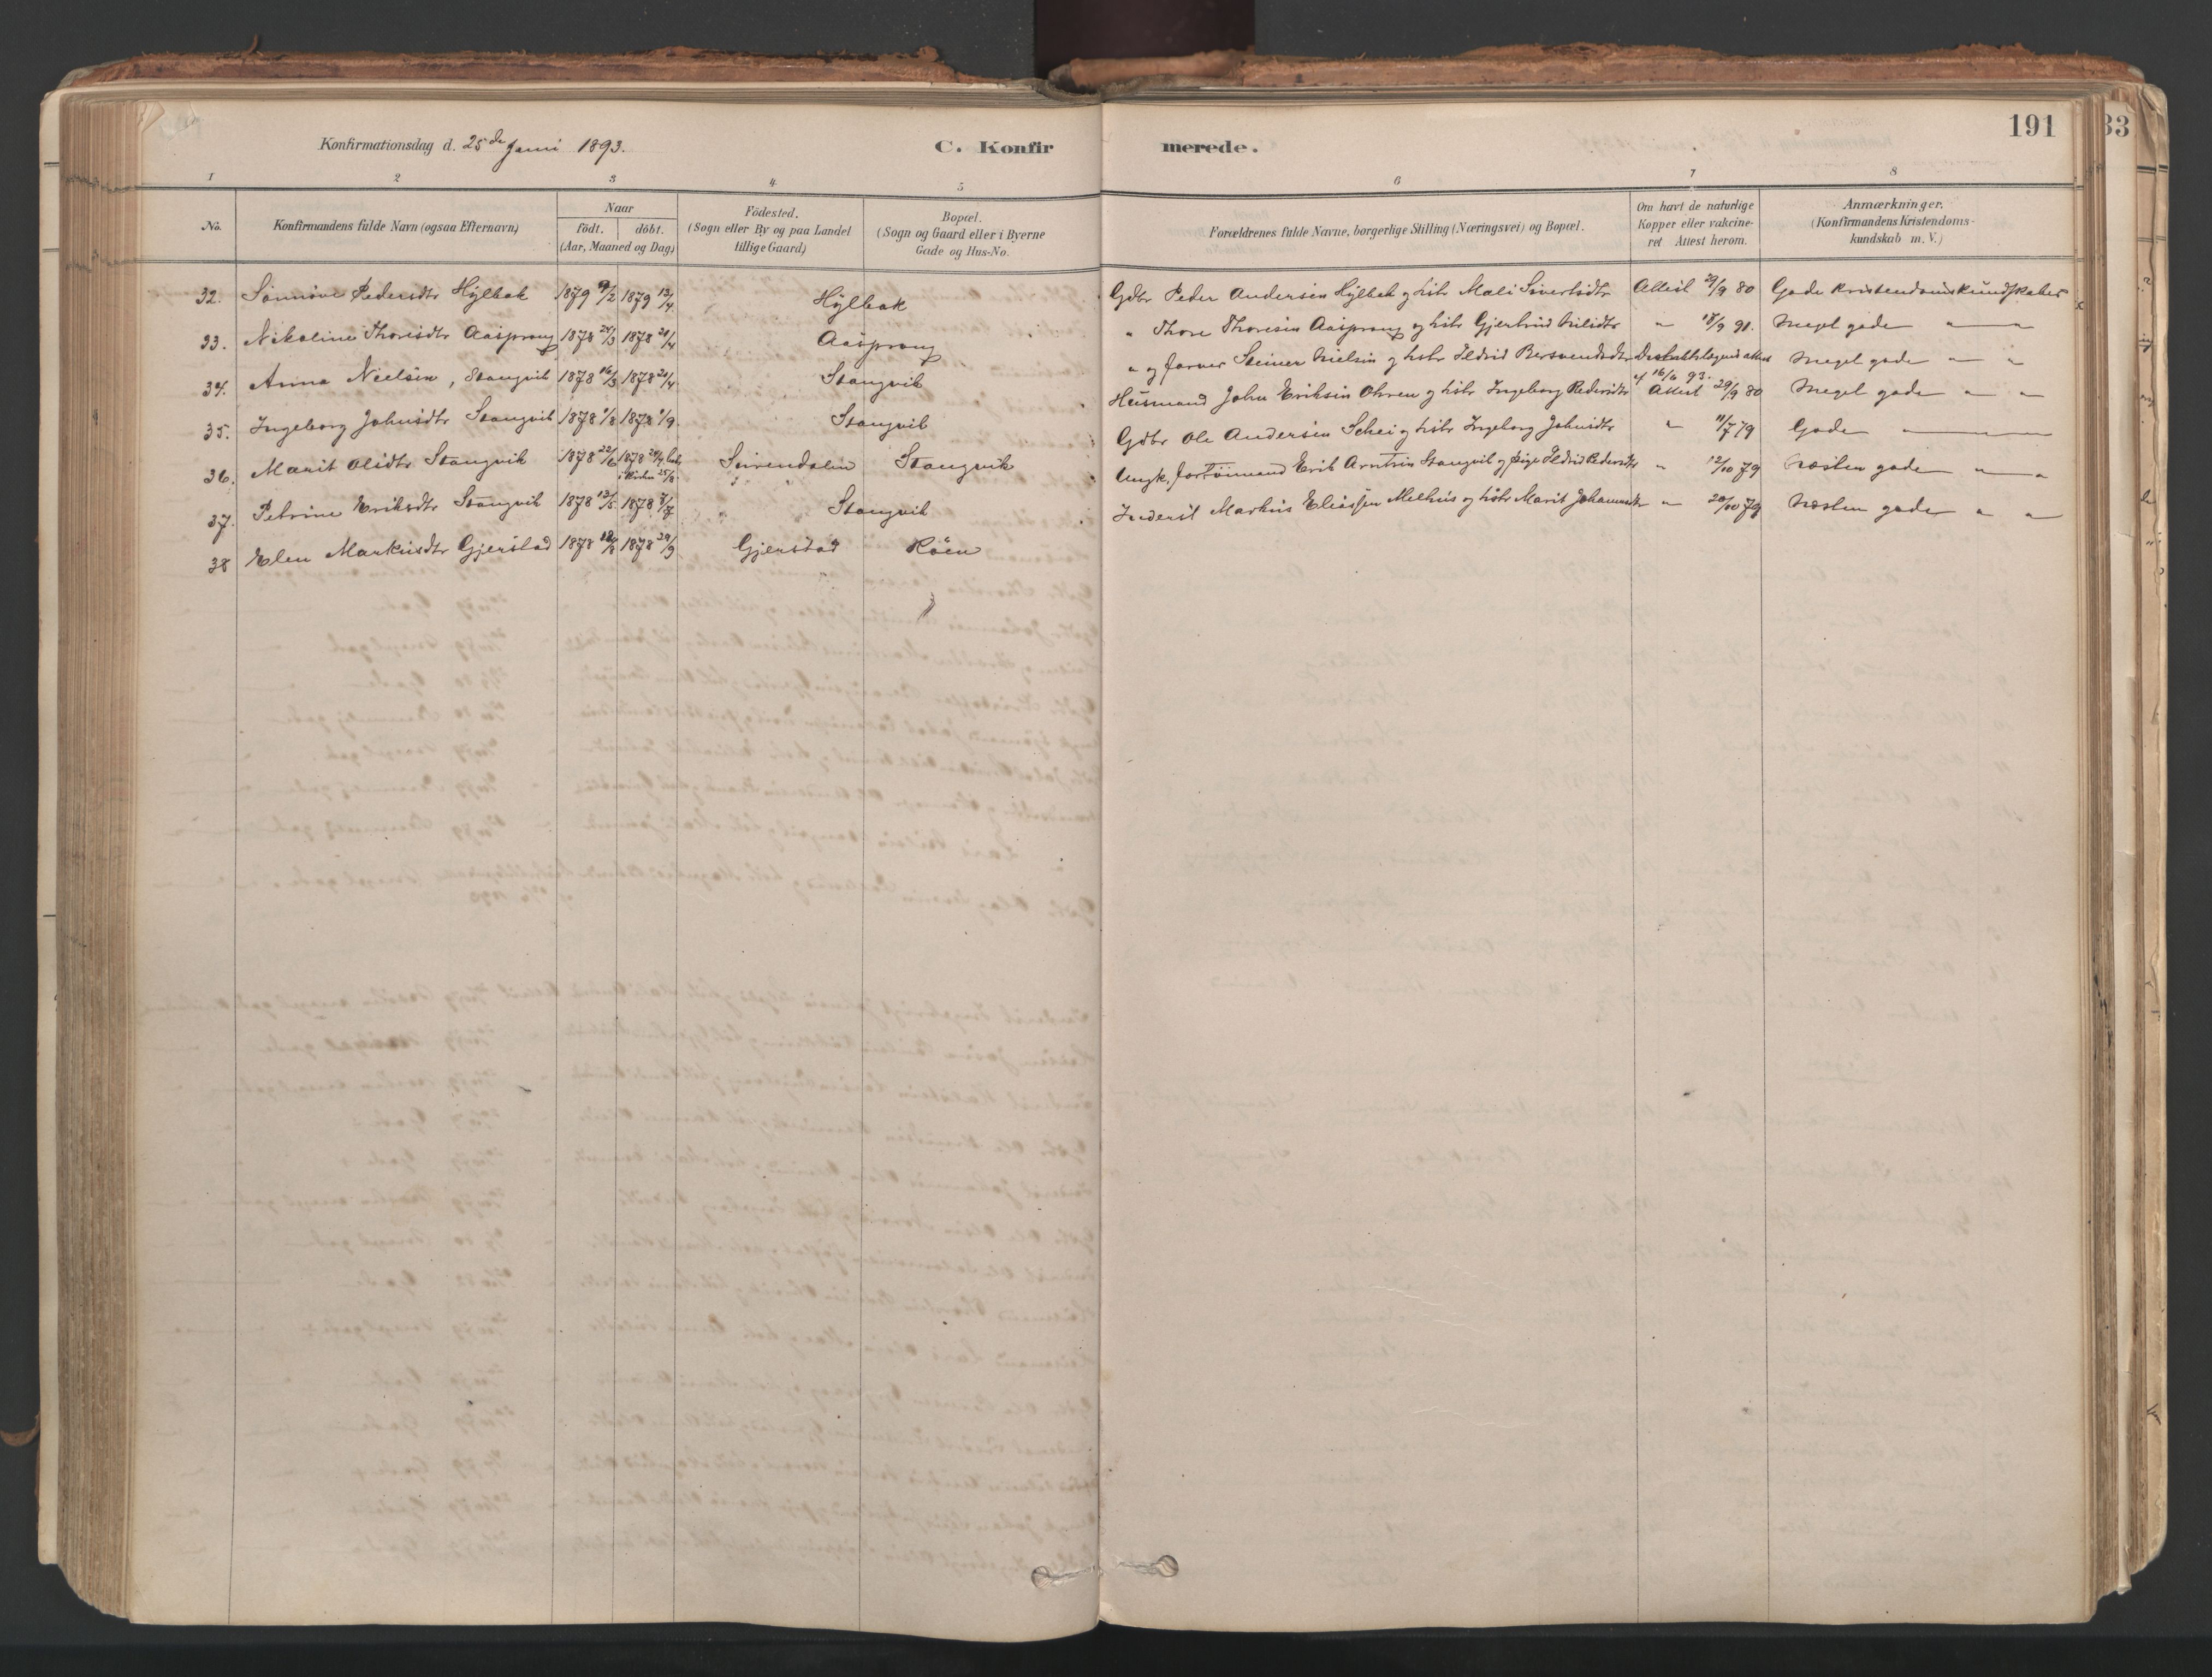 191
33
Konfirmationsdag d. 25de Juni 1893.
C. Konfirmerede.
1 2 3 4 5 6 7 8
No. Konfirmandens fulde Navn (ogsaa Efternavn) Naar födt. döbt. (Aar, Maaned og Dag) Födested. (Sogn eller By og paa Landet tillige Gaard) Bopæl. (Sogn og Gaard eller i Byerne Gade og Hus-No. Forældrenes fulde Navne, borgerlige Stilling (Næringsvei) og Bopæl. Om havt de naturlige Kopper eller vakcineret. Attest herom. Anmærkninger. (Konfirmandens Kristendomskundskab m. V.)
32. Sønnøve Pedersdtr Hÿlbak 1879 9/2 1879 13/4 Hÿlbak Gdbr Peder Andersen Hÿlbak og hstr Mali Sivertsdtr Attest 29/9 80 Gode Kristendomskundskaber
33. Nikoline Thoresdtr Aasprong 1878 24/3 1878 21/4 Aasprong " Thore Thoresen Aasprong og hstr Gjertrud Nilsdtr " 18/9 91. Meget gode " "
34. Anna Nielsen, Stangvik 1878 16/3 1878 21/4. Stangvik " og farver Steiner Nielsen og hstr Ildrid Bersvendsdtr Distriktslægens attest af 16/6 93. Meget gode " "
35. Ingeborg Johnsdtr Stangvik 1878 1/8 1878 1/9. Stangvik Husmand John Eriksen Ohren og hstr Ingeborg Pedersdtr Attest 29/9 80 Meget gode " "
36. Marit Olsdtr Stangvik 1878 22/6 1878 Stangvik Gdbr Ole Andersen Schei og hstr Ingeborg Johnsdtr " 11/7 79 Gode
37. Petrine Eriksdtr Stangvik 1878 13/5 1878 " " Stangvik Ungk. Erik Arntsen Stangvik og pige Ildrid Pedersdtr " 12/10 79 Næsten gode " "
38 Elen Markusdtr Gjerstad 1878 1878 29/9 Gjerstad Röen Inderst Markus Eliassen Melhus og hstr Marit " 20/10 79 Næsten gode " "